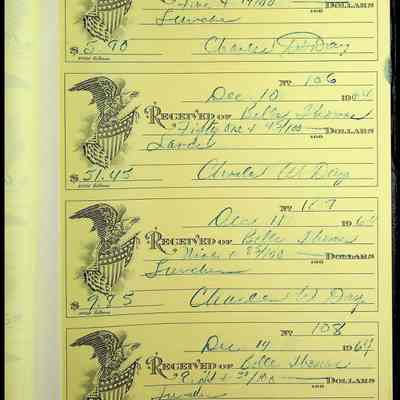 Five & 90/100 DOLLARS
Lunches
$ 5.90 Charles W Day
No 106
Dec. 10 1964
RECEIVED OF Bille Thomas
Fifty One & 45/100 DOLLARS
$ 51.45 Charles W Day
No 107
Dec 11 1964
RECEIVED OF Bille Thomas
Nine & /100 DOLLARS
Lunches
$ 9.75 Charles W Day
No 108
Dec 14 1964
RECEIVED OF Bille Thomas
Eight & /100 DOLLARS